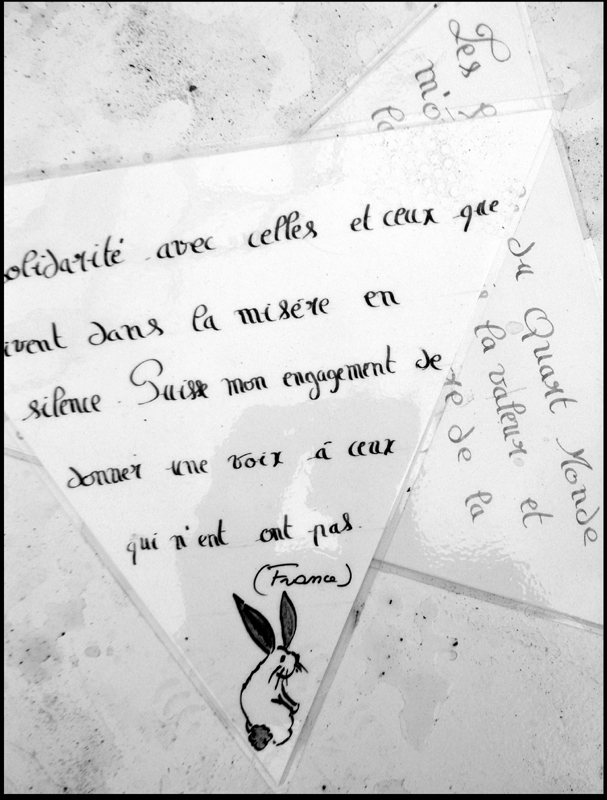 olidarité avec celles et ceux que
ivent dans la misére en
silence. Puisse mon engagement de
donner une voix à ceux
qui n'ent ont pas.
(France)
Les
mo
la
du Quart Monde
la valeur et
re de la